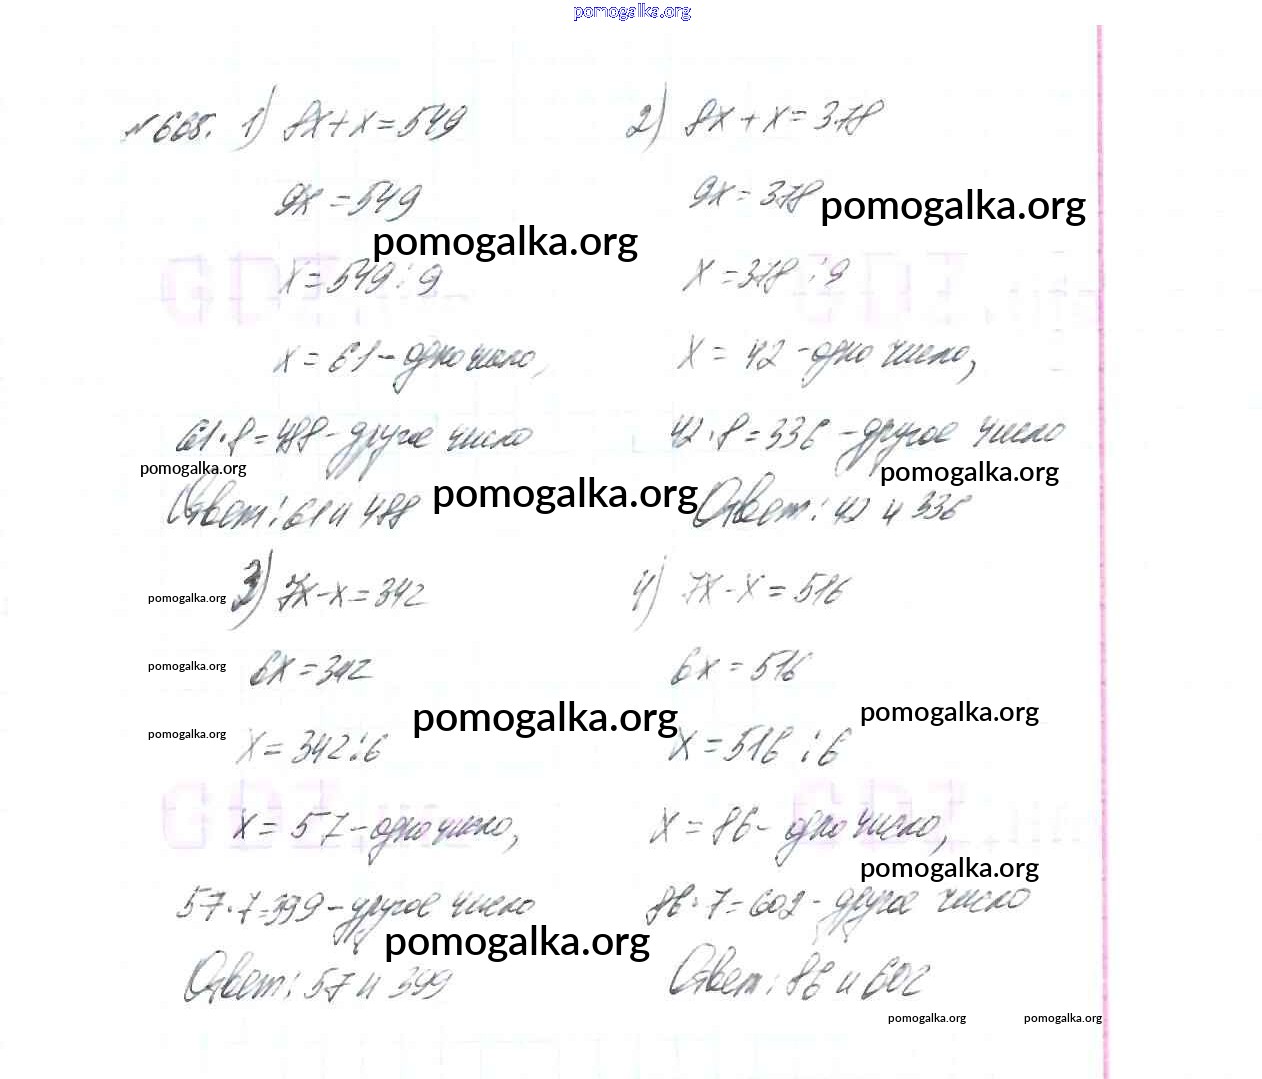 pomogalka.org
№ 665. 1) 8x + x = 549
9x = 549
pomogalka.org
x = 549 : 9
x = 61 - одно число,
61 · 8 = 488 - другое число
pomogalka.org
Ответ: 61 и 488
pomogalka.org
2) 8x + x = 378
9x = 378
pomogalka.org
x = 378 : 9
x = 42 - одно число,
42 · 8 = 336 - другое число
pomogalka.org
Ответ: 42 и 336
3) 7x - x = 342
pomogalka.org
6x = 342
pomogalka.org
pomogalka.org
x = 342 : 6
pomogalka.org
x = 57 - одно число,
57 · 7 = 399 - другое число
pomogalka.org
Ответ: 57 и 399
4) 7x - x = 516
6x = 516
pomogalka.org
x = 516 : 6
x = 86 - одно число,
pomogalka.org
86 · 7 = 602 - другое число
Ответ: 86 и 602
pomogalka.org
pomogalka.org